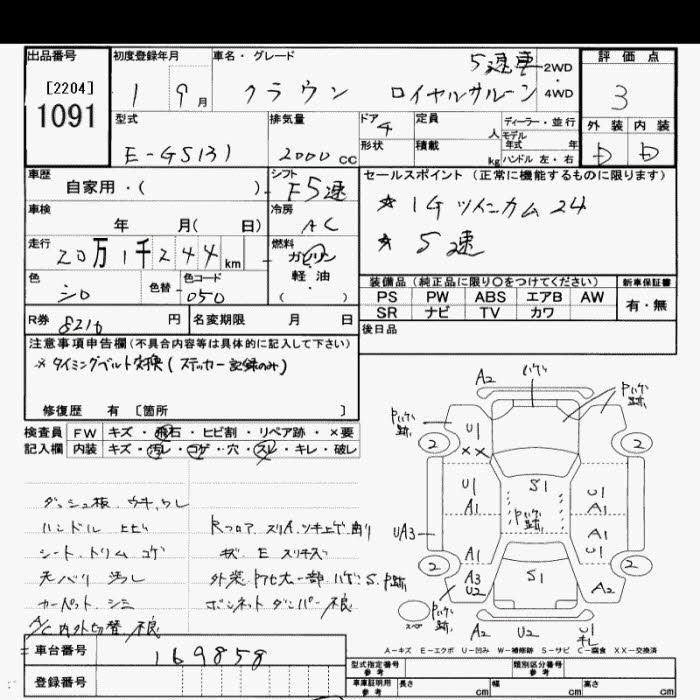 出品番号
[2204]
1091
初度登録年月
1 9月
車名・グレード
5速車
クラウン ロイヤルサルーン
2WD
・
4WD
評価点
3
外装 内装
D D
型式
E-GS131
排気量
2000 cc
ドア
4
形状
定員
人
積載
kg
ディーラー・並行
モデル
年式 年
ハンドル 左・右
車歴
自家用・( )
シフト
F5速
車検
年 月( 日)
冷房
AC
走行
20万1千244km
燃料
ガソリン
軽油
( )
色
シロ
色替
色コード
050
R券 8210 円
名変期限 月 日
セールスポイント(正常に機能するものに限ります)
☆ 1G ツインカム 24
☆ 5速
装備品(純正品に限り○をつけてください)
新車保証書
PS PW ABS エアB AW
SR ナビ TV カワ
有・無
後日品
注意事項申告欄(不具合内容等は具体的に記入して下さい)
※タイミングベルト交換(ステッカー記録のみ)
修復歴 有 [箇所 ]
検査員 FW キズ・飛石・ヒビ割・リペア跡・×要
記入欄 内装 キズ・汚レ・コゲ・穴・スレ・キレ・破レ
ダッシュ板、ウキ、ワレ
ハンドル ヒビ
シート、トリム コゲ
天バリ 汚レ
カーペット シミ
A/C内外切替不良
Rフロア スリ、ツキ上ゲ曲り
E スリキズ
外装 一部ハゲ、S、P跡
ボンネットダンパー不良
A2 ハゲ
Pハゲ跡
Pハゲ跡
U1
××
2 2
U1 S1 U1
A1 A1
Pハゲ跡
UA3
A1 U1
2 2
A3 U2
S1
A2
Pハゲ跡
スペ
A2 U2 U1キレ
A-キズ E-エクボ U-凹み W-補修跡 S-サビ C-腐食 XX-交換済
車台番号 169858
登録番号
型式指定番号
参考
類別区分番号
参考
車庫証明用
参考
長さ cm 幅 cm 高さ cm